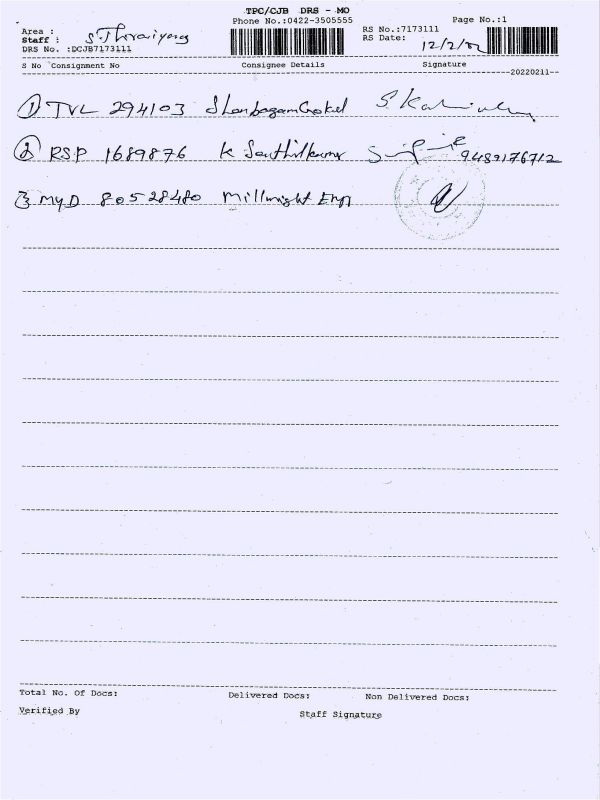 TPC/CJB DRS - MO
Phone No.:0422-3505555 Page No.:1
Area : RS No.:7173111
Staff : S. RS Date: 12/2/22
DRS No. :DCJB7173111
S No Consignment No Consignee Details Signature
20220211
1 TVL 294103
2 RSP 1689876 K Senthilkumar 9489176712
3 MYD 80528480 Millwright Eng
Total No. Of Docs: Delivered Docs: Non Delivered Docs:
Verified By Staff Signature